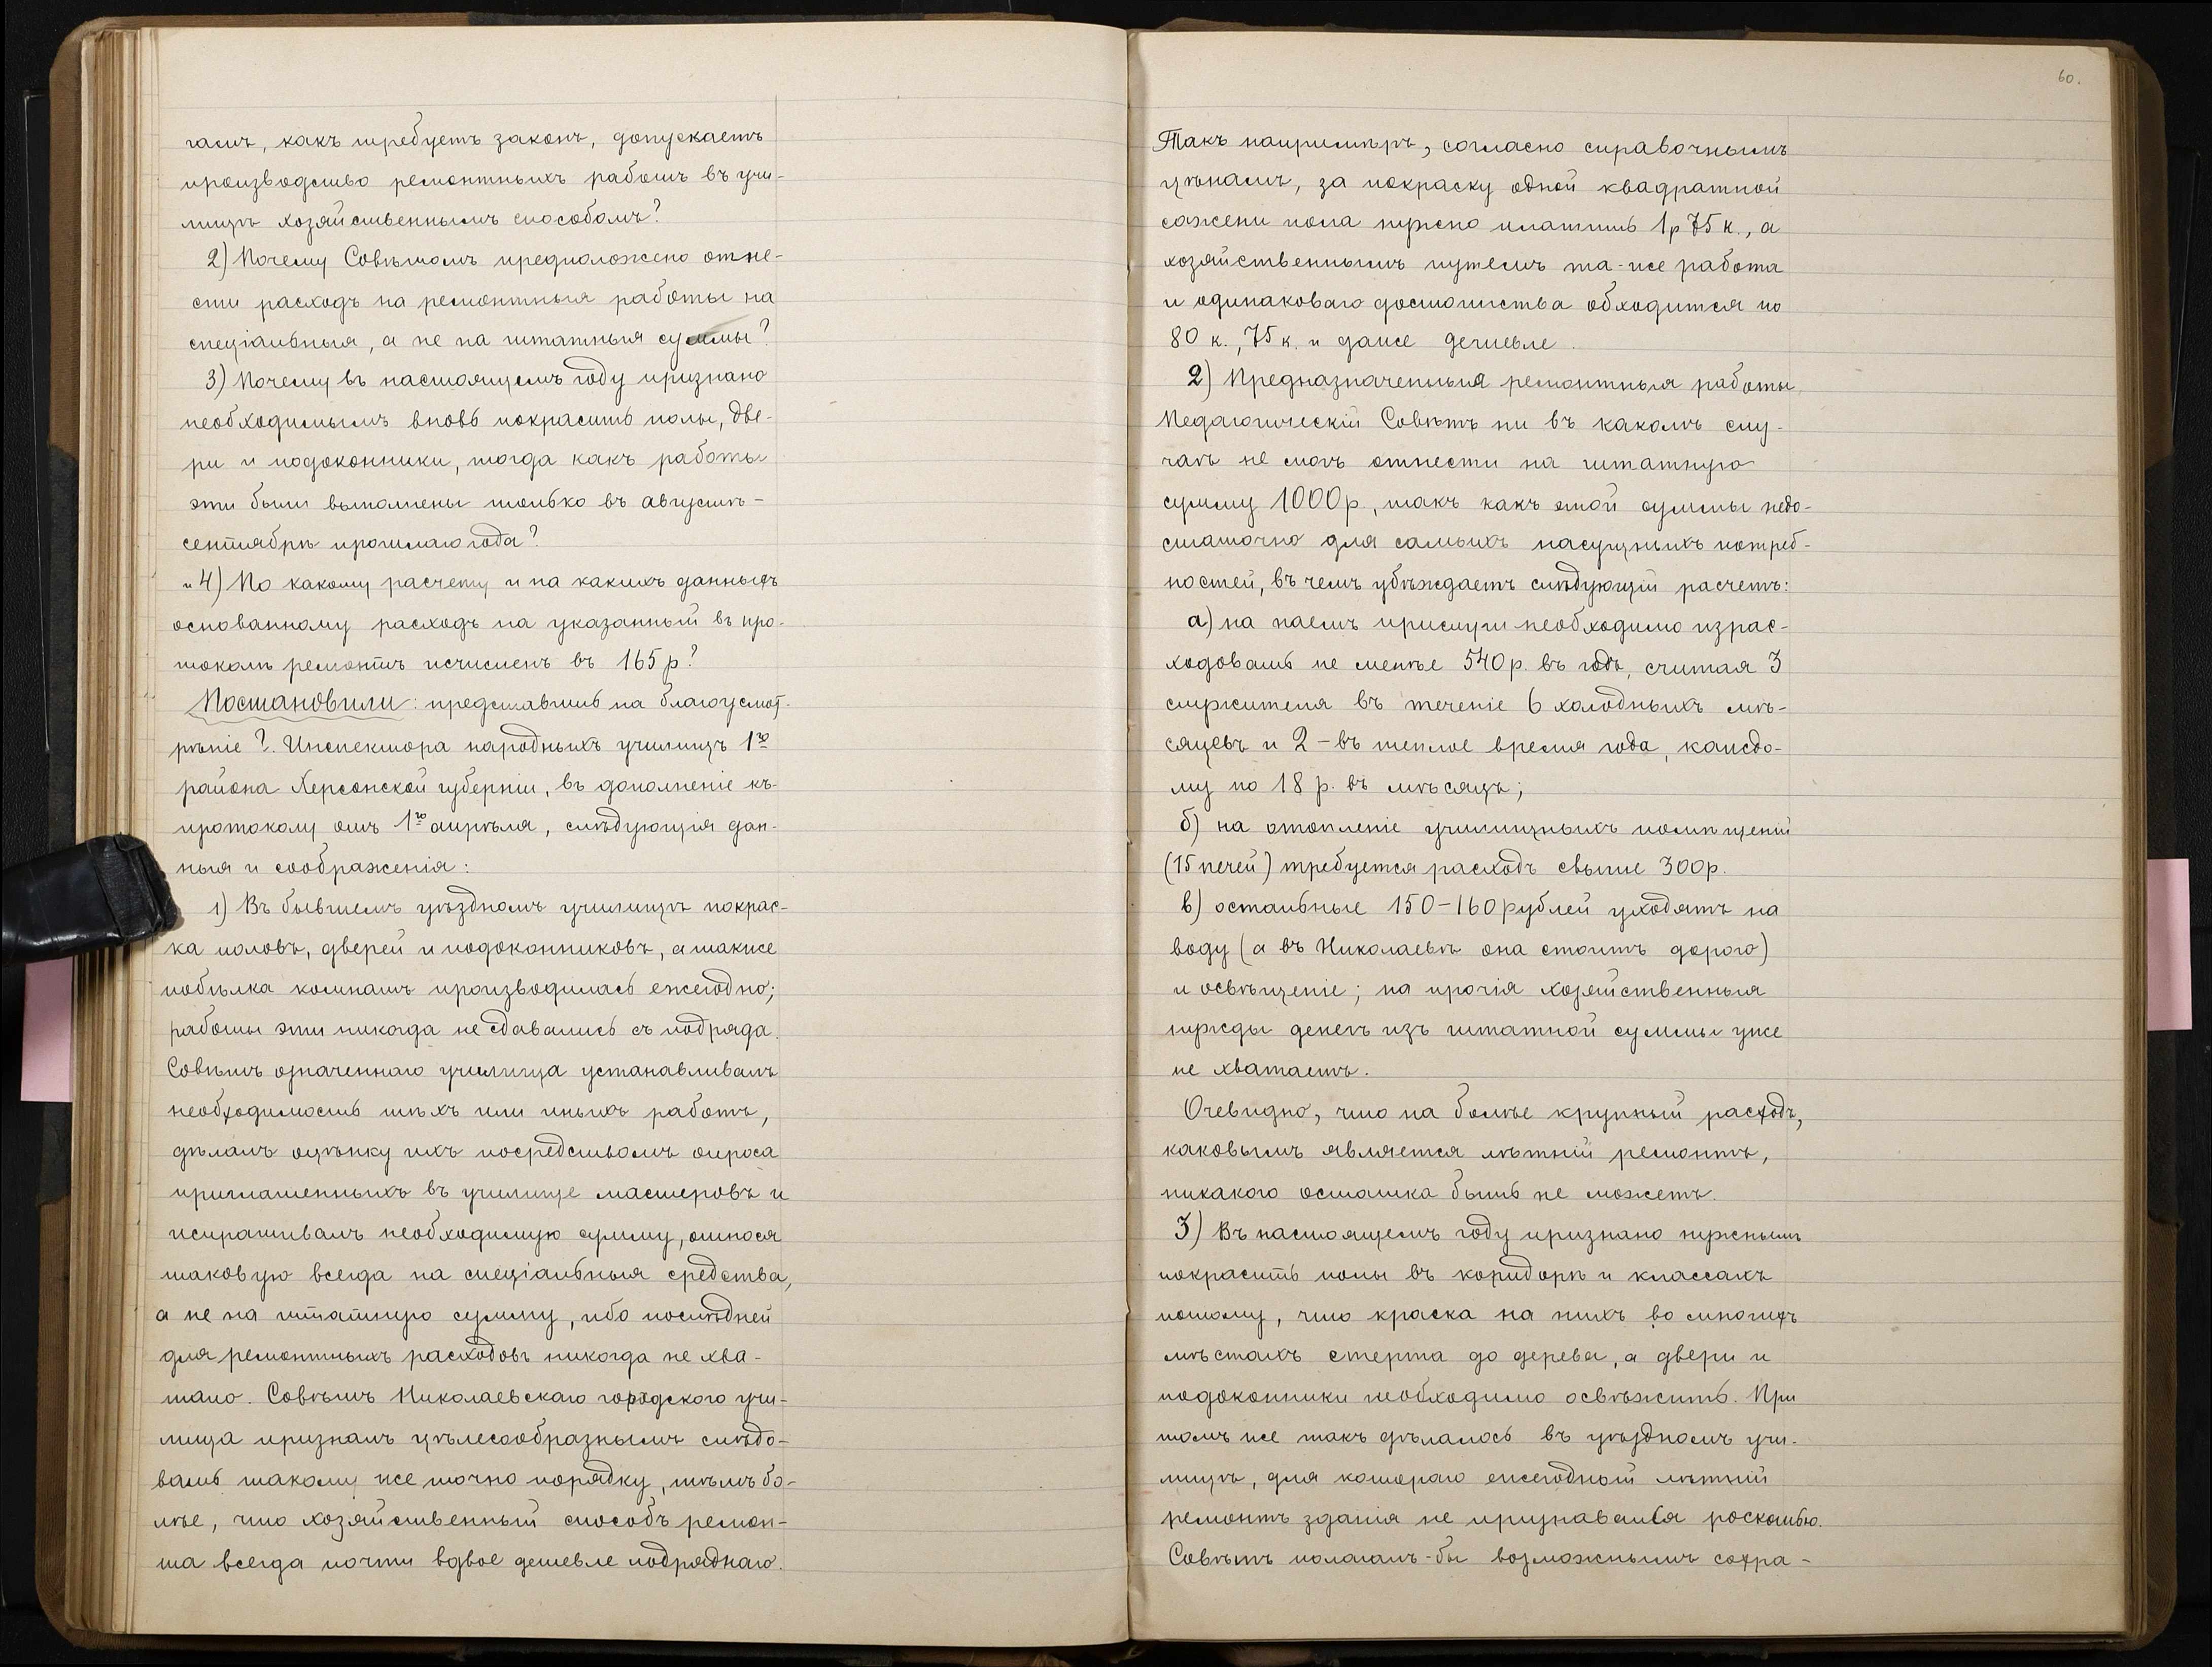 гамъ, какъ требуетъ законъ, допускаетъ
производство ремонтныхъ работъ въ учи-
лищѣ хозяйственнымъ способомъ?
2) Почему Совѣтомъ предположено отне-
сти расходъ на ремонтныя работы на
спеціальныя, а не на штатныя суммы?
3) Почему въ настоящемъ году признано
необходимымъ вновь покрасить полы, две-
ри и подоконники, тогда какъ работы
эти были выполнены только въ августѣ-
сентябрѣ прошлаго года?
и 4) По какому расчету и на какихъ данныхъ
основанному расходъ на указанный въ про-
токолѣ ремонтъ исчисленъ въ 165 р?
Постановили: представить на благоусмот-
рѣніе Г. Инспектора народныхъ училищъ 1го
района Херсонской губерніи, въ дополненіе къ
протоколу отъ 1го апрѣля, слѣдующія дан-
ныя и соображенія:
1) Въ бывшемъ уѣздномъ училищѣ покрас-
ка половъ, дверей и подоконниковъ, а также
побѣлка комнатъ производилась ежегодно;
работы эти никогда не сдавались съ подряда.
Совѣтъ означеннаго училища устанавливалъ
необходимость тѣхъ или иныхъ работъ,
дѣлалъ оцѣнку ихъ посредствомъ опроса
приглашенныхъ въ училище мастеровъ и
испрашивалъ необходимую сумму, относя
таковую всегда на спеціальныя средства,
а не на штатную сумму, ибо послѣдней
для ремонтныхъ расходовъ никогда не хва-
тало. Совѣтъ Николаевскаго городского учи-
лища призналъ цѣлесообразнымъ слѣдо-
вать такому же точно порядку, тѣмъ бо-
лѣе, что хозяйственный способъ ремон-
та всегда почти вдвое дешевле подряднаго.
60.
Такъ напримѣръ, согласно справочнымъ
цѣнамъ, за покраску одной квадратной
сажени пола нужно платить 1 р 75 к., а
хозяйственнымъ путемъ та-же работа
и одинаковаго достоинства обходится по
80 к., 75 к. и даже дешевле.
2) Предназначенныя ремонтныя работы
Педагогическій Совѣтъ ни въ какомъ слу-
чаѣ не могъ отнести на штатную
сумму 1000 р., такъ какъ этой суммы недо-
статочно для самыхъ насущныхъ потреб-
ностей, въ чемъ убѣждаетъ слѣдующій расчетъ:
а) на наемъ прислуги необходимо израс-
ходовать не менѣе 540 р. въ годъ, считая 3
служителя въ теченіе 6 холодныхъ мѣ-
сяцевъ и 2 - въ теплое время года, каждо-
му по 18 р. въ мѣсяцъ;
б) на отопленіе училищныхъ помѣщеній
(15 печей) требуется расходъ свыше 300 р.
в) остальные 150-160 рублей уходятъ на
воду (а въ Николаевѣ она стоитъ дорого)
и освѣщеніе; на прочія хозяйственныя
нужды денегъ изъ штатной суммы уже
не хватаетъ.
Очевидно, что на болѣе крупный расходъ,
каковымъ является лѣтній ремонтъ,
никакого остатка быть не можетъ.
3) Въ настоящемъ году признано нужнымъ
покрасить полы въ коридорѣ и классахъ
потому, что краска на нихъ во многихъ
мѣстахъ стерта до дерева, а двери и
подоконники необходимо освѣжить. При
томъ же такъ дѣлалось въ уѣздномъ учи-
лищѣ, для котораго ежегодной лѣтній
ремонтъ зданія не признавался роскошью.
Совѣтъ полагалъ-бы возможнымъ сохра-